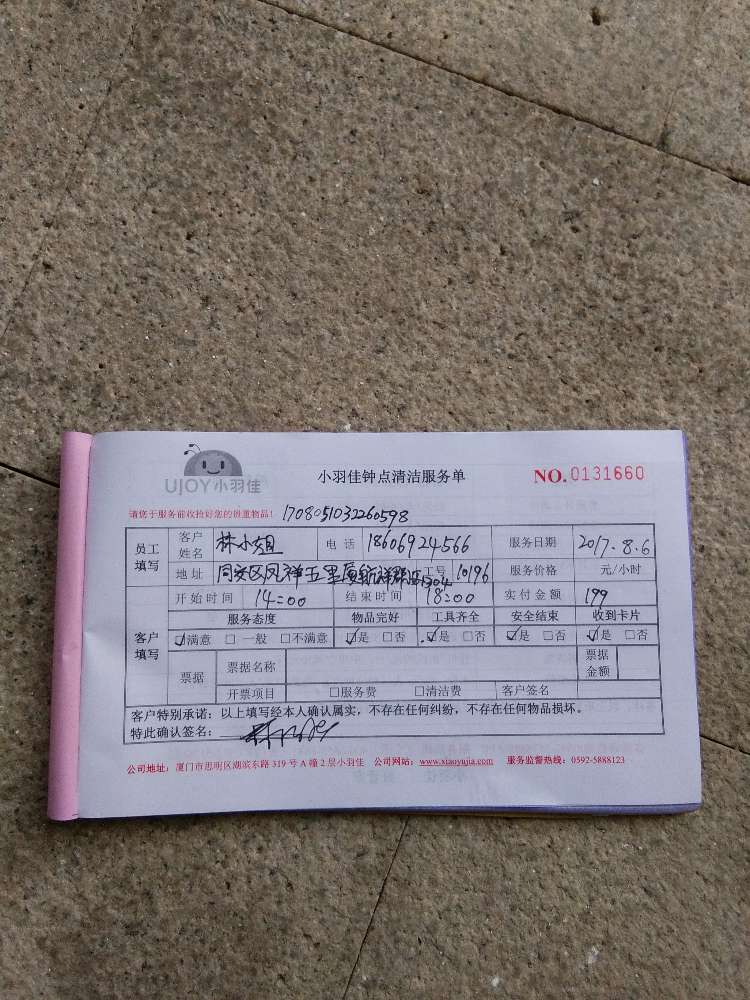 UJOY小羽佳
小羽佳钟点清洁服务单
NO.0131660
请您于服务前收捡好您的贵重物品! 1708051032260598
员工填写 客户姓名 林小姐 电话 18606924566 服务日期 2017.8.6
地址 同安区凤祥五里厦航祥郡 1304 工号 10196 服务价格 元/小时
开始时间 14:00 结束时间 18:00 实付金额 199
客户填写 服务态度 物品完好 工具齐全 安全结束 收到卡片
☑满意 □一般 □不满意 ☑是 □否 ☑是 □否 ☑是 □否 ☑是 □否
票据 票据名称 票据金额
开票项目 □服务费 □清洁费 客户签名
客户特别承诺：以上填写经本人确认属实，不存在任何纠纷，不存在任何物品损坏。
特此确认签名：
公司地址：厦门市思明区湖滨东路 319 号 A 幢 2 层小羽佳 公司网站：www.xiaoyujia.com 服务监督热线：0592-5888123